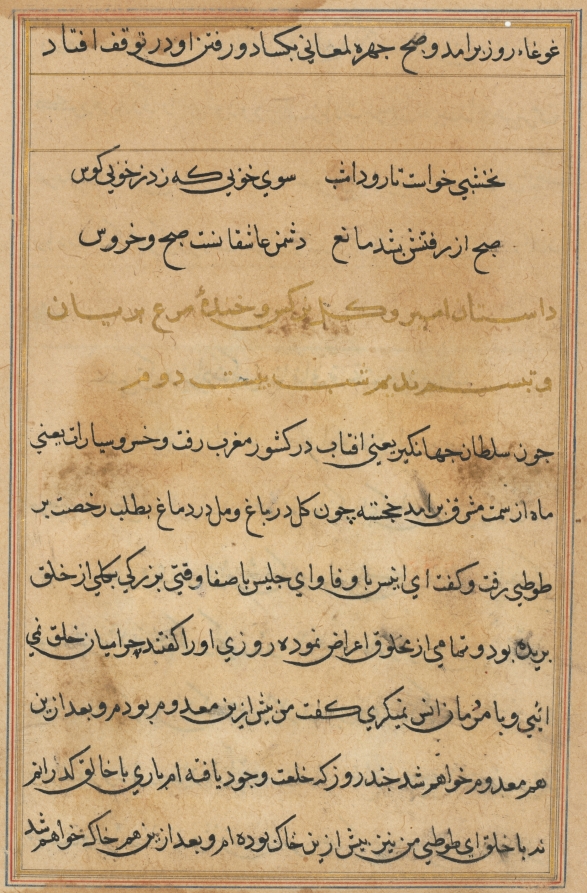 غوغاء روز برامد و صبح چهره لمعانی بکشاد و رفتن او در توقف افتاد
نخشبی خواست تا رود امشب سوی خوبی که زد ز خوبی کوس
صبح از رفتنش بشد مانع دشمن عاشقانست صبح و خروس
داستان امیر و کل و خندهٔ مرغ بریان
و تبسم شب بیست دوم
چون سلطان جهانکیر یعنی افتاب در کشور مغرب رفت و خسرو سیارات یعنی
ماه از سمت مشرق برامد خجسته چون کل در باغ و مل در دماغ بطلب رخصت بر
طوطی رفت و کفت ای انیس با وفا و ای جلیس با صفا وقتی بزرکی بکلی از خلق
بریده بود و تمامی از مخلوق اعراض نموده روزی او را کفتند چرا میان خلق نمی
ائی و با مردمان انس نمیکری کفت من پیش ازین معدوم بودم و بعد ازین
هم معدوم خواهم شد چند روز که خلعت وجود یافته ام باری با خالق کذرانم
نه با خلق ای طوطی من نیز پیش ازین خاک بوده ام و بعد ازین هم خاک خواهم شد